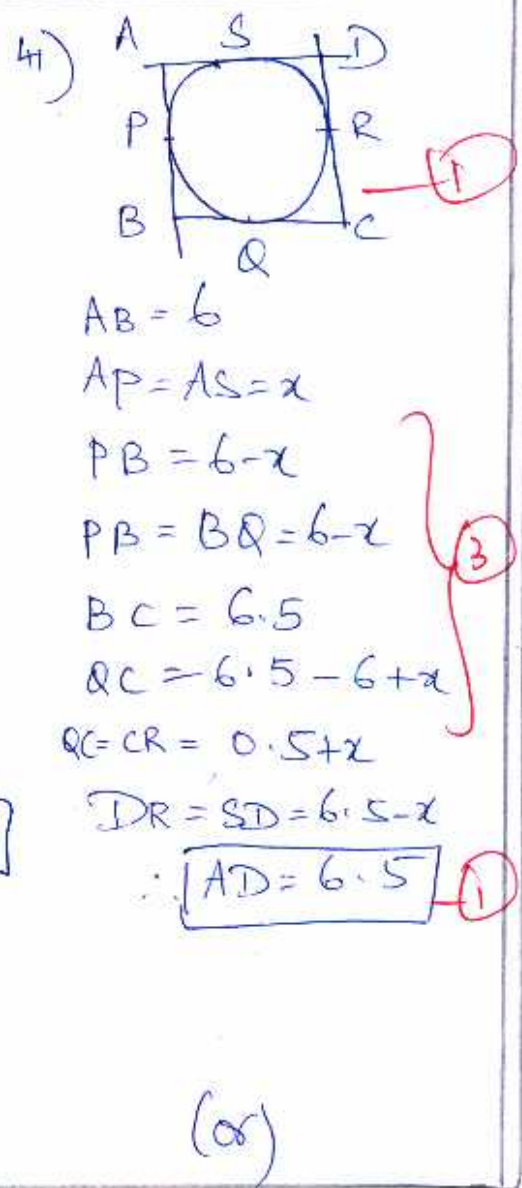 41)
A S D
P R
1
B C
Q
AB = 6
AP = AS = x
PB = 6-x
PB = BQ = 6-x
3
BC = 6.5
QC = 6.5 - 6 + x
QC = CR = 0.5+x
DR = SD = 6.5-x
∴ AD = 6.5
1
(or)